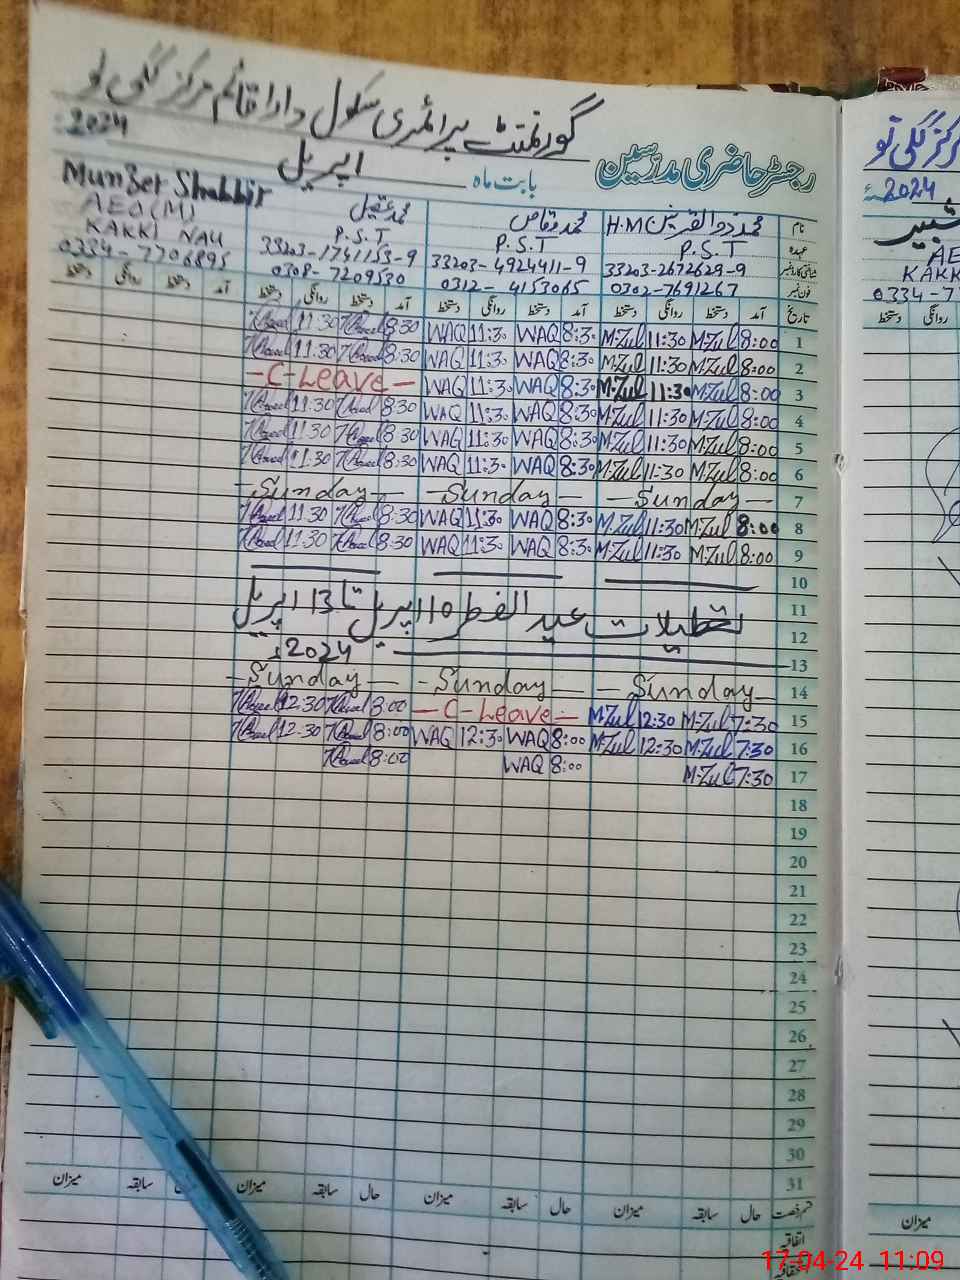 گورنمنٹ پرائمری سکول دادا قائم مرکز گلی نو
رجسٹر حاضری مدرسین بابت ماہ اپریل 2024ء
نام محمد ذوالقرنین H.M محمد وقاص محمد عقیل Munzer Shabbir
عہدہ P.S.T P.S.T P.S.T AEO(M)
شناختی کارڈ نمبر 33203-2672629-9 33203-4924411-9 33203-1741153-9 KAKKI NAU
فون نمبر 0302-7691267 0312-4153065 0308-7209530 0334-7706895
تاریخ آمد دستخط روانگی دستخط آمد دستخط روانگی دستخط آمد دستخط روانگی دستخط آمد دستخط روانگی دستخط
1 8:00 M.Zul 11:30 M.Zul 8:30 WAQ 11:30 WAQ 8:30 11:30
2 8:00 M.Zul 11:30 M.Zul 8:30 WAQ 11:30 WAQ 8:30 11:30
3 8:00 M.Zul 11:30 M.Zul 8:30 WAQ 11:30 WAQ - C-Leave -
4 8:00 M.Zul 11:30 M.Zul 8:30 WAQ 11:30 WAQ 8:30 11:30
5 8:00 M.Zul 11:30 M.Zul 8:30 WAQ 11:30 WAQ 8:30 11:30
6 8:00 M.Zul 11:30 M.Zul 8:30 WAQ 11:30 WAQ 8:30 11:30
7 - Sunday - - Sunday - - Sunday -
8 8:00 M.Zul 11:30 M.Zul 8:30 WAQ 11:30 WAQ 8:30 11:30
9 8:00 M.Zul 11:30 M.Zul 8:30 WAQ 11:30 WAQ 8:30 11:30
10
11 تعطیلات عید الفطر 10 اپریل تا 13 اپریل
12 2024ء
13
14 - Sunday - - Sunday - - Sunday -
15 7:30 M.Zul 12:30 M.Zul - C-Leave - 8:00 12:30
16 7:30 M.Zul 12:30 M.Zul 8:00 WAQ 12:30 WAQ 8:00 12:30
17 7:30 M.Zul 8:00 WAQ 8:00
18
19
20
21
22
23
24
25
26
27
28
29
30
31
قسم رخصت حال سابقہ میزان حال سابقہ میزان حال سابقہ میزان سابقہ میزان
اتفاقیہ
مرکز گلی نو
2024ء
شبیر
AE
KAKK
0334-7
روانگی دستخط
میزان
17-04-24 11:09